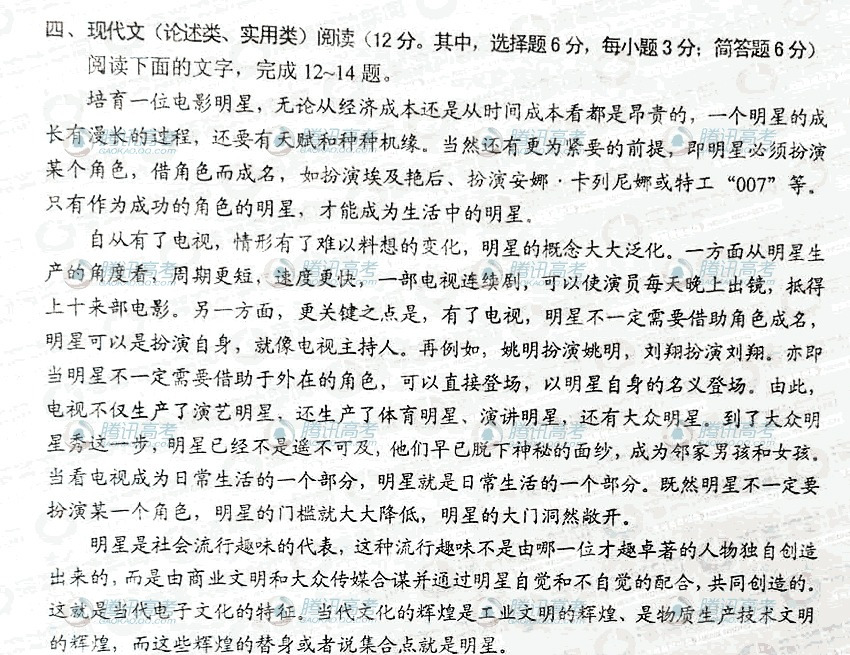 四、现代文（论述类、实用类）阅读（12分。其中，选择题6分，每小题3分；简答题6分）
阅读下面的文字，完成12~14题。
培育一位电影明星，无论从经济成本还是从时间成本看都是昂贵的，一个明星的成
长有漫长的过程，还要有天赋和种种机缘。当然还有更为紧要的前提，即明星必须扮演
某个角色，借角色而成名，如扮演埃及艳后、扮演安娜·卡列尼娜或特工“007”等。
只有作为成功的角色的明星，才能成为生活中的明星。
自从有了电视，情形有了难以料想的变化，明星的概念大大泛化。一方面从明星生
产的角度看，周期更短，速度更快，一部电视连续剧，可以使演员每天晚上出镜，抵得
上十来部电影。另一方面，更关键之点是，有了电视，明星不一定需要借助角色成名，
明星可以是扮演自身，就像电视主持人。再例如，姚明扮演姚明，刘翔扮演刘翔。亦即
当明星不一定需要借助于外在的角色，可以直接登场，以明星自身的名义登场。由此，
电视不仅生产了演艺明星，还生产了体育明星、演讲明星，还有大众明星。到了大众明
星秀这一步，明星已经不是遥不可及，他们早已脱下神秘的面纱，成为邻家男孩和女孩。
当看电视成为日常生活的一个部分，明星就是日常生活的一个部分。既然明星不一定要
扮演某一个角色，明星的门槛就大大降低，明星的大门洞然敞开。
明星是社会流行趣味的代表，这种流行趣味不是由哪一位才趣卓著的人物独自创造
出来的，而是由商业文明和大众传媒合谋并通过明星自觉和不自觉的配合，共同创造的。
这就是当代电子文化的特征。当代文化的辉煌是工业文明的辉煌、是物质生产技术文明
的辉煌，而这些辉煌的替身或者说集合点就是明星。